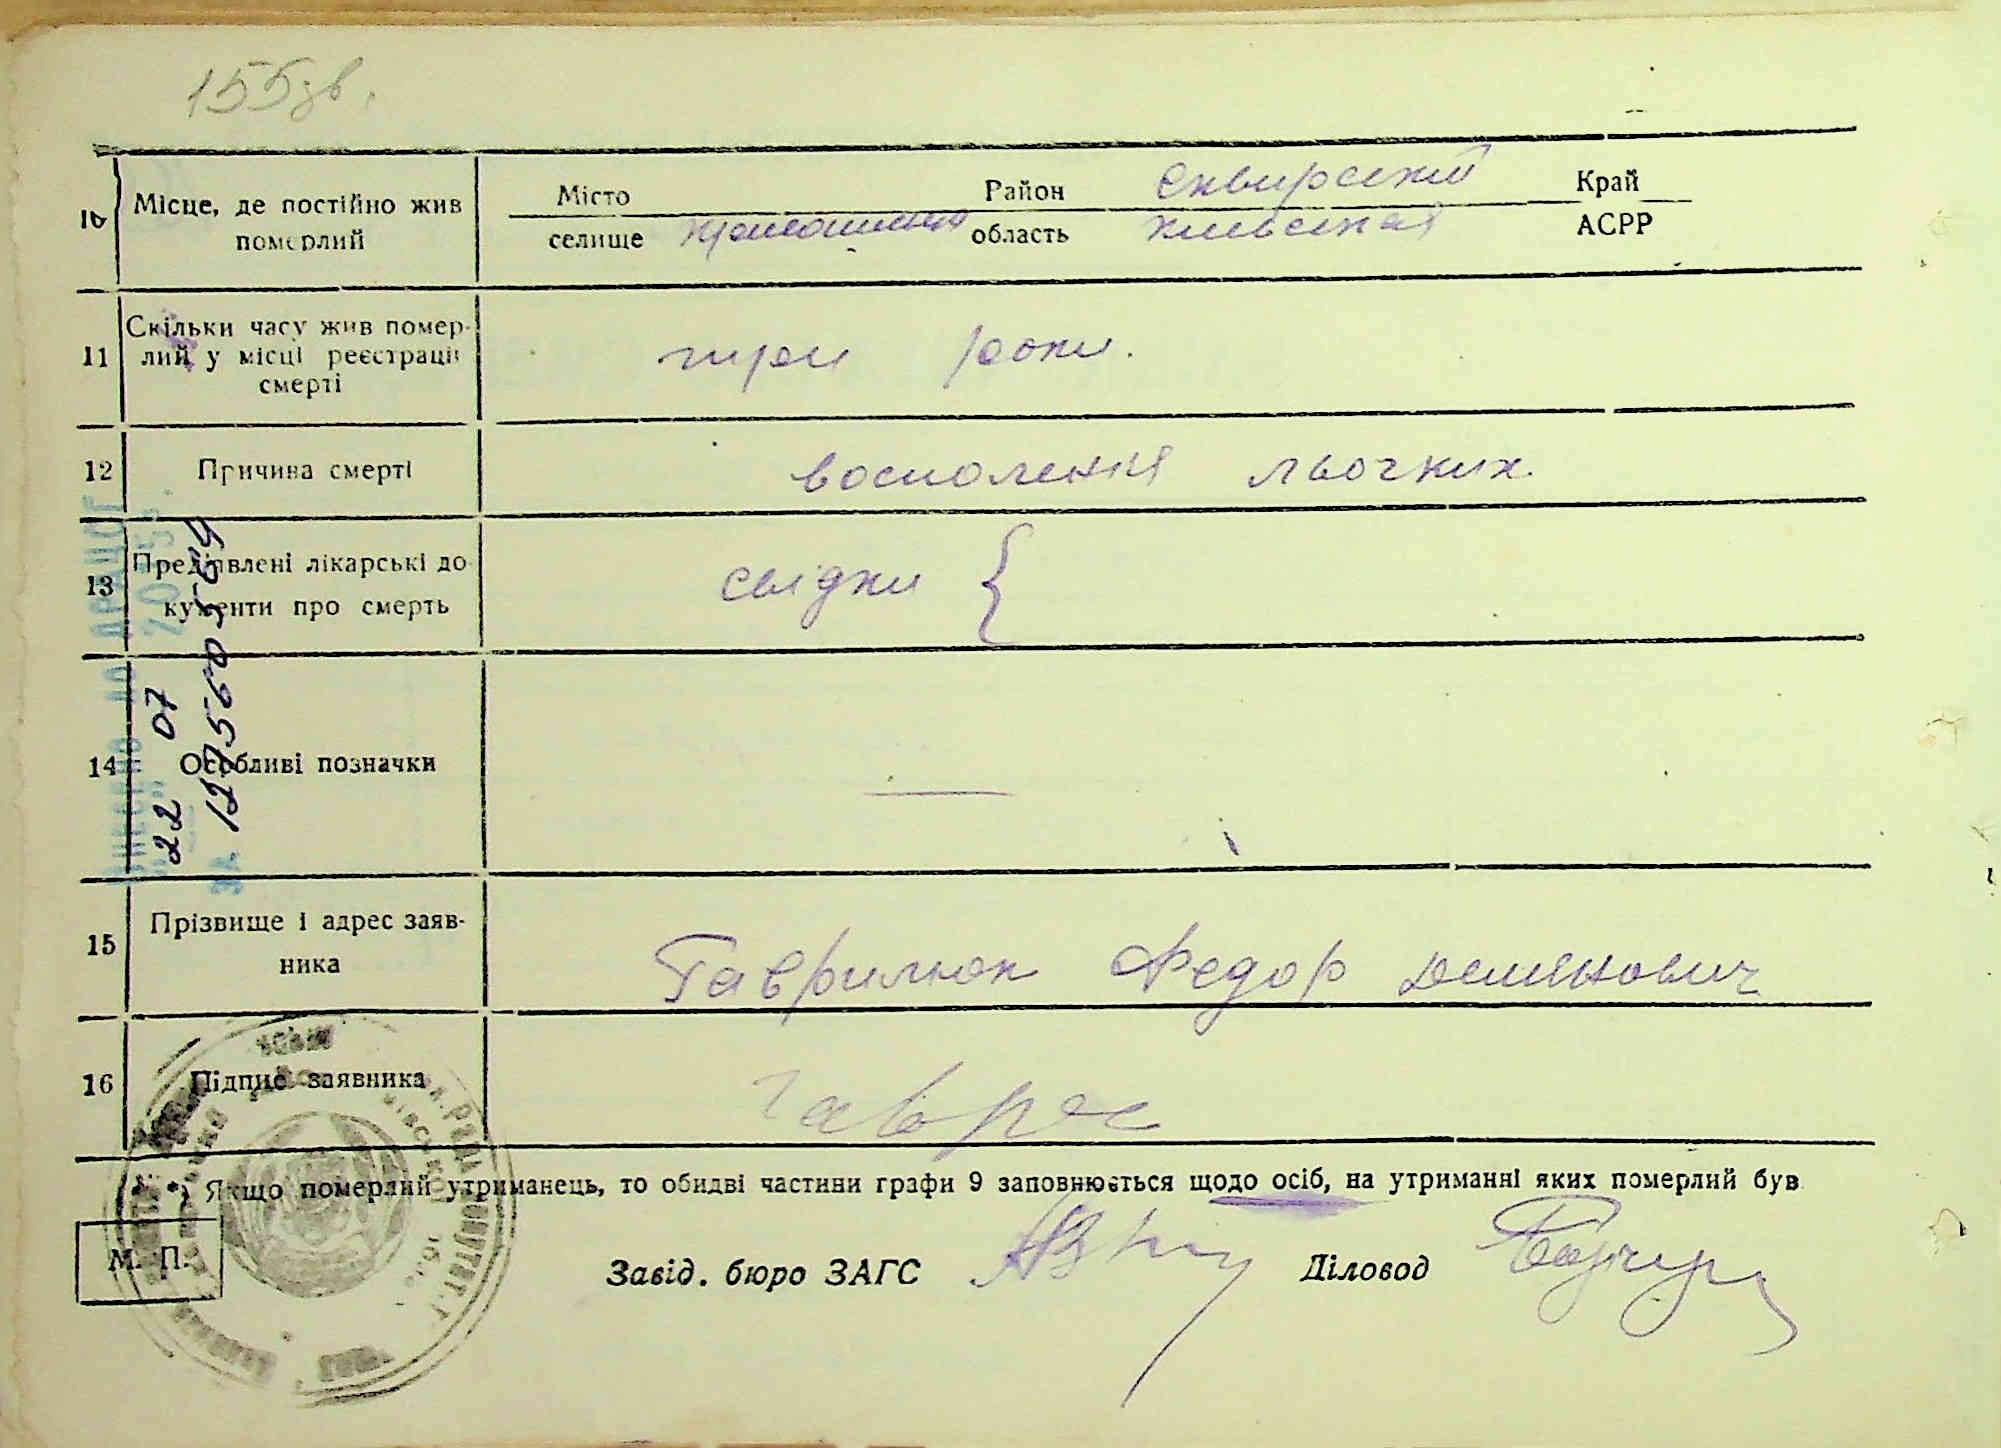 155зв.
10 Місце, де постійно жив померлий
Місто Район Сквирский Край
селище область Киевская АСРР
11 Скільки часу жив помер-
лий у місці реєстрації
смерті
три роки.
12 Причина смерті восполения льочких
13 Пред'явлені лікарські до-
кументи про смерть
свідки {
14 Особливі позначки —
22 07
за. 12756
15 Прізвище і адрес заяв-
ника
Гаврилюк Федор Демянович
16 Підпис заявника
Гаврил
*) Якщо померлий утриманець, то обидві частини графи 9 заповнюється щодо осіб, на утриманні яких померлий був
М. П.
Завід. бюро ЗАГС Діловод